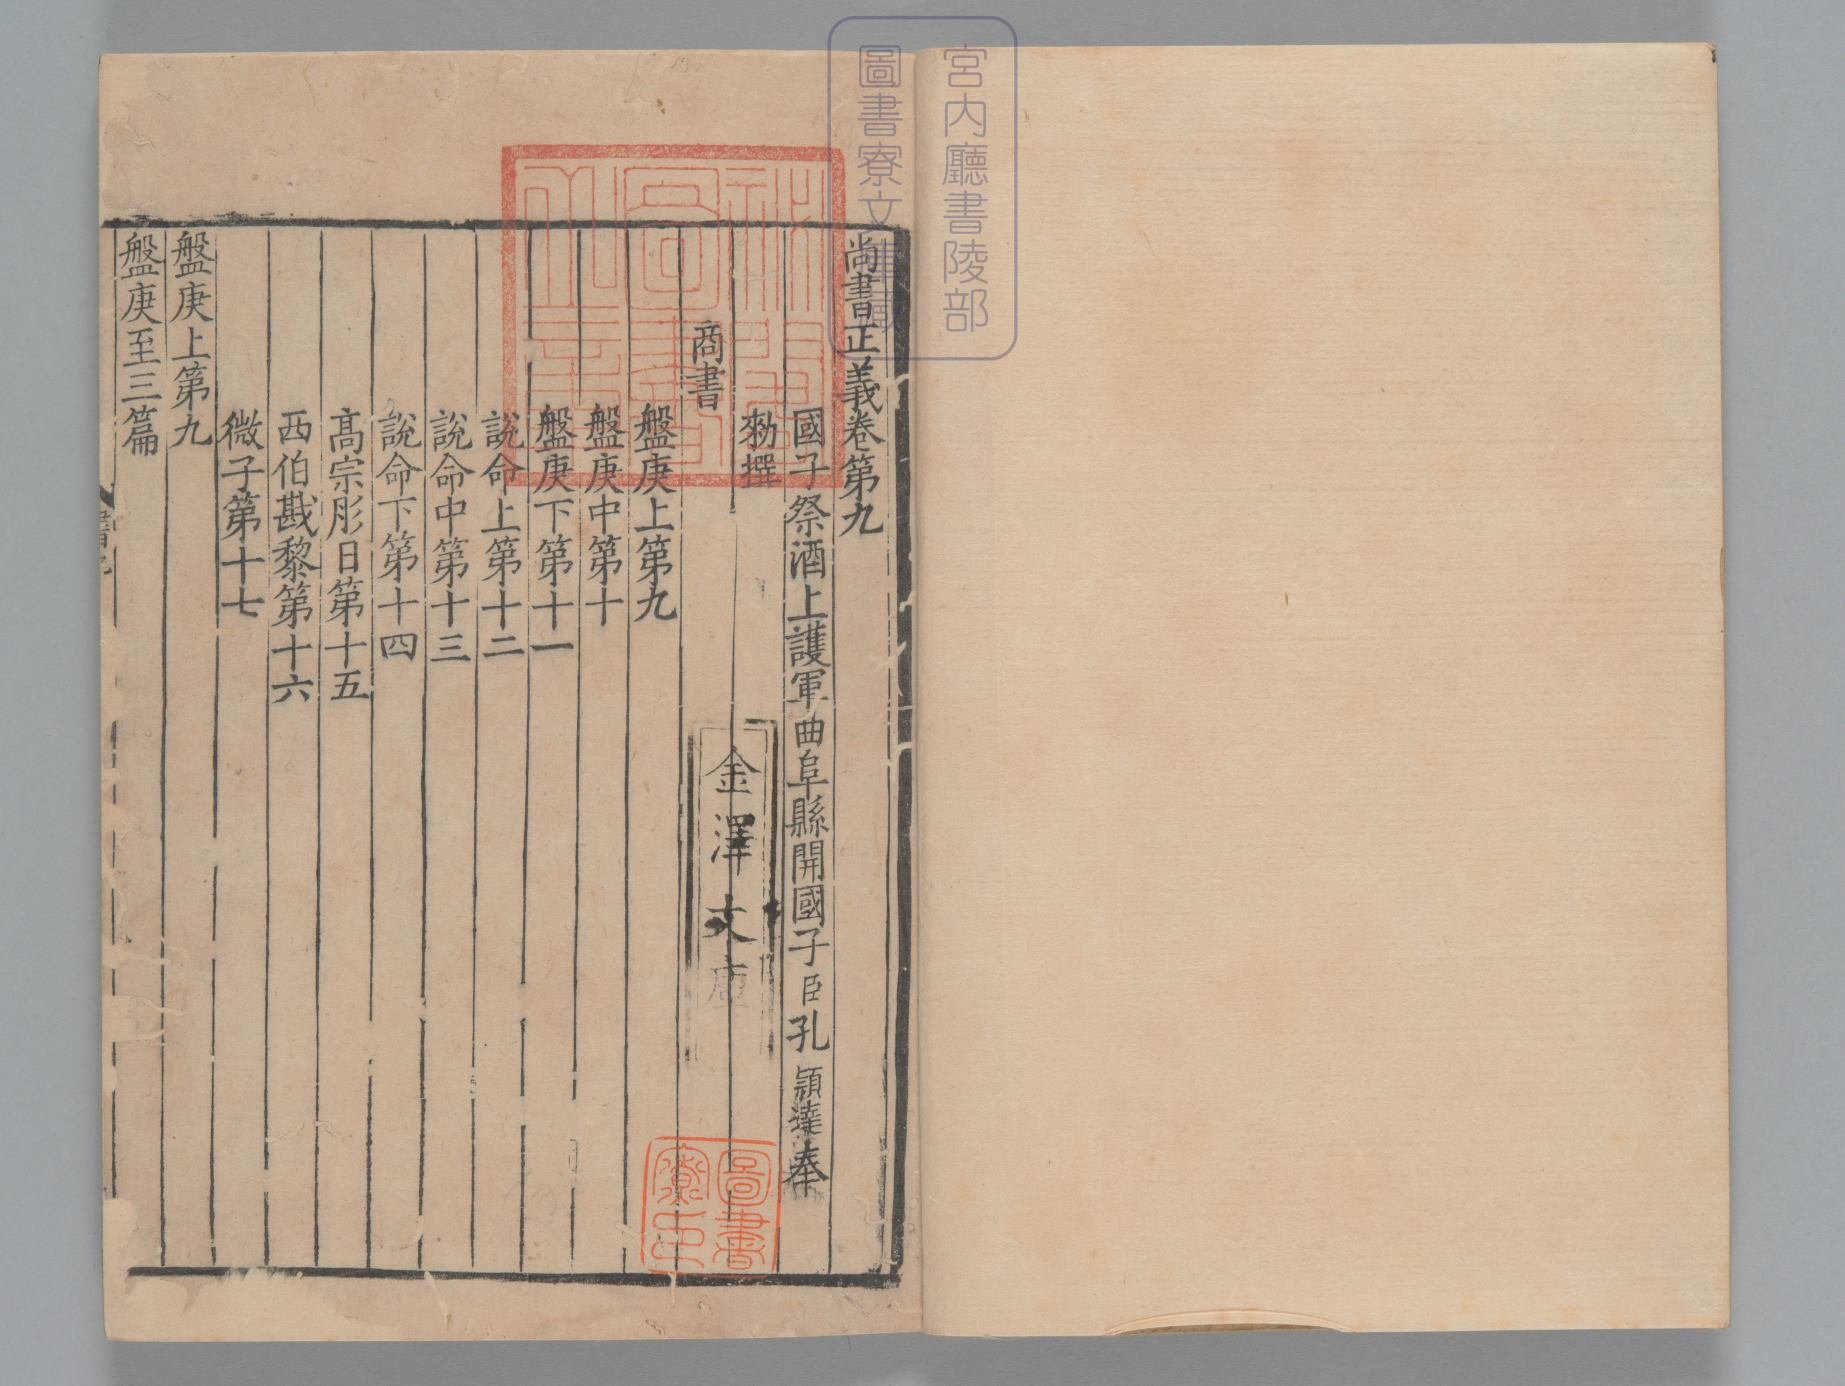 宮内廳書陵部
圖書寮文庫藏
尚書正義卷第九
國子祭酒上護軍曲阜縣開國子臣孔穎達奉
勑撰
商書
盤庚上第九
盤庚中第十
盤庚下第十一
說命上第十二
說命中第十三
說命下第十四
髙宗肜日第十五
西伯戡黎第十六
微子第十七
盤庚上第九
盤庚至三篇
金澤文庫
圖書
寮印